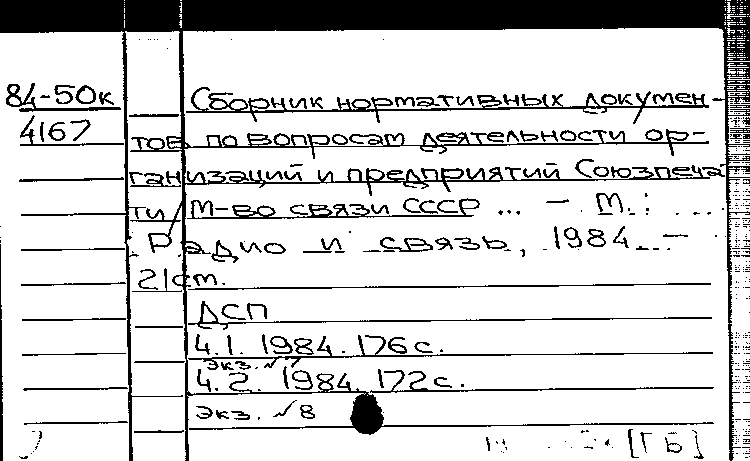 84-50к
4167
Сборник нормативных докумен-
тов по вопросам деятельности ор-
ганизаций и предприятий Союзпеча
ти / М-во связи СССР ... - М. :
Радио и связь, 1984. -
21 см.
ДСП
Ч.1. 1984. 176 с.
Экз. № 7
Ч.2. 1984. 172 с.
Экз. № 8
[ГБ]